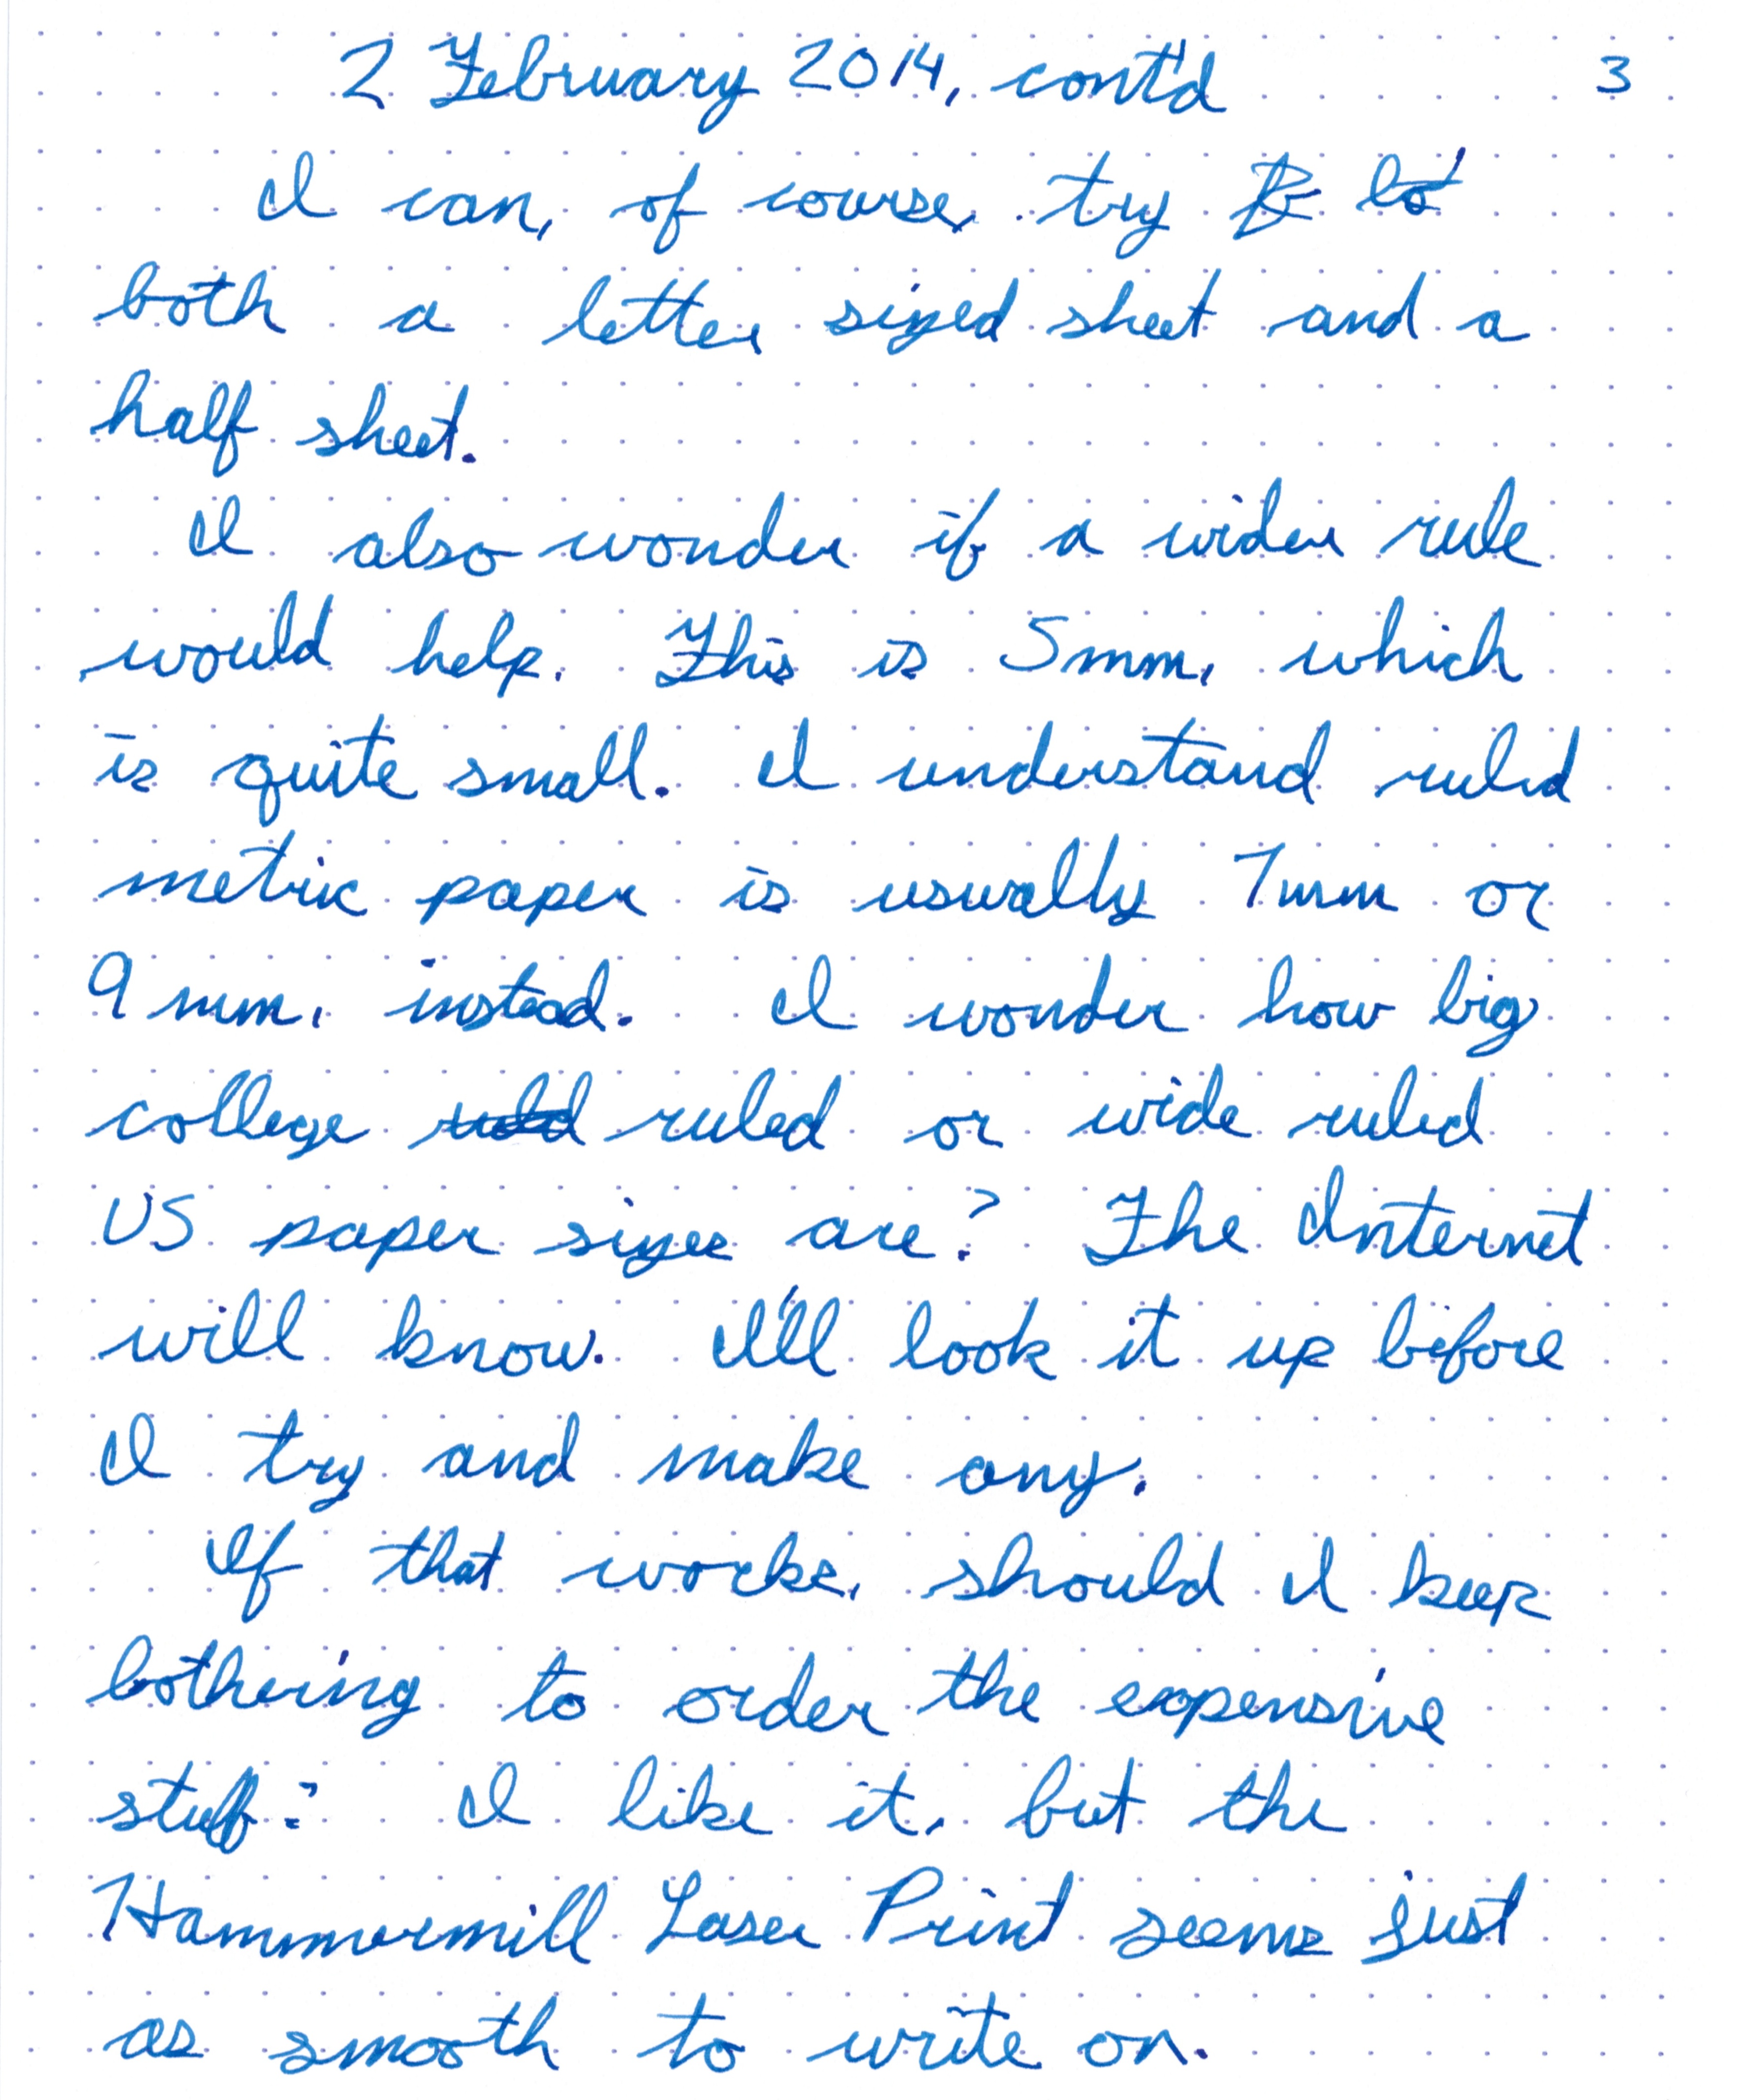 2 February 2014, cont'd 3
I can, of course, try to to
both a letter sized sheet and a
half sheet.
I also wonder if a wider rule
would help. This is 5mm, which
is quite small. I understand ruled
metric paper is usually 7mm or
9mm, instead. I wonder how big
college ruled ruled or wide ruled
US paper sizes are? The Internet
will know. I'll look it up before
I try and make any.
If that works, should I keep
bothering to order the expensive
stuff? I like it, but the
Hammermill Laser Print seems just
as smooth to write on.